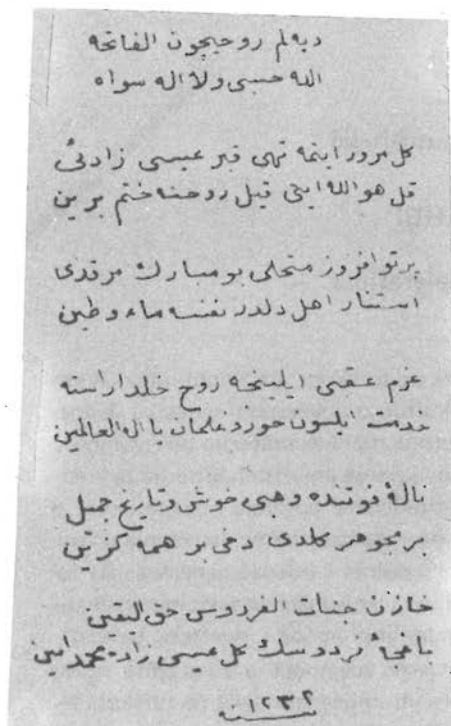 ديه‌لم روحيچون الفاتحه
الله حسبى ولا اله سواه
كل مرور ايتمه تهى قبر عيسى زاده‌ئى
قل هو الله ايتى قيل روحنه ختم برين
پرتو افروز متجلى بو مبارك مرقدى
اهل دلدر نفسه ماء وطين
عزم عقبى ايلينجه روح خلد اراسته
خدمت بلسون حور وغلمان يا اله العالمين
نالۀ فوتنده وهبى خوش تاريخ جميل
بر مجوهر كلدى دخى بر همه
خازن جنات الفردوس حق اليقين
باغچۀ فردوسك كل عيسى زاده محمد امين
سنه ١٢٣٢